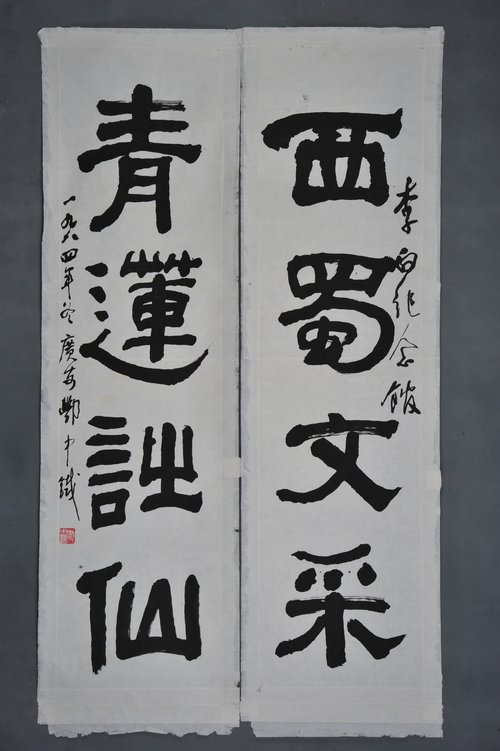 西蜀文采
李白紀念館
青蓮詩仙
一九八四年冬廣安酆中鐵